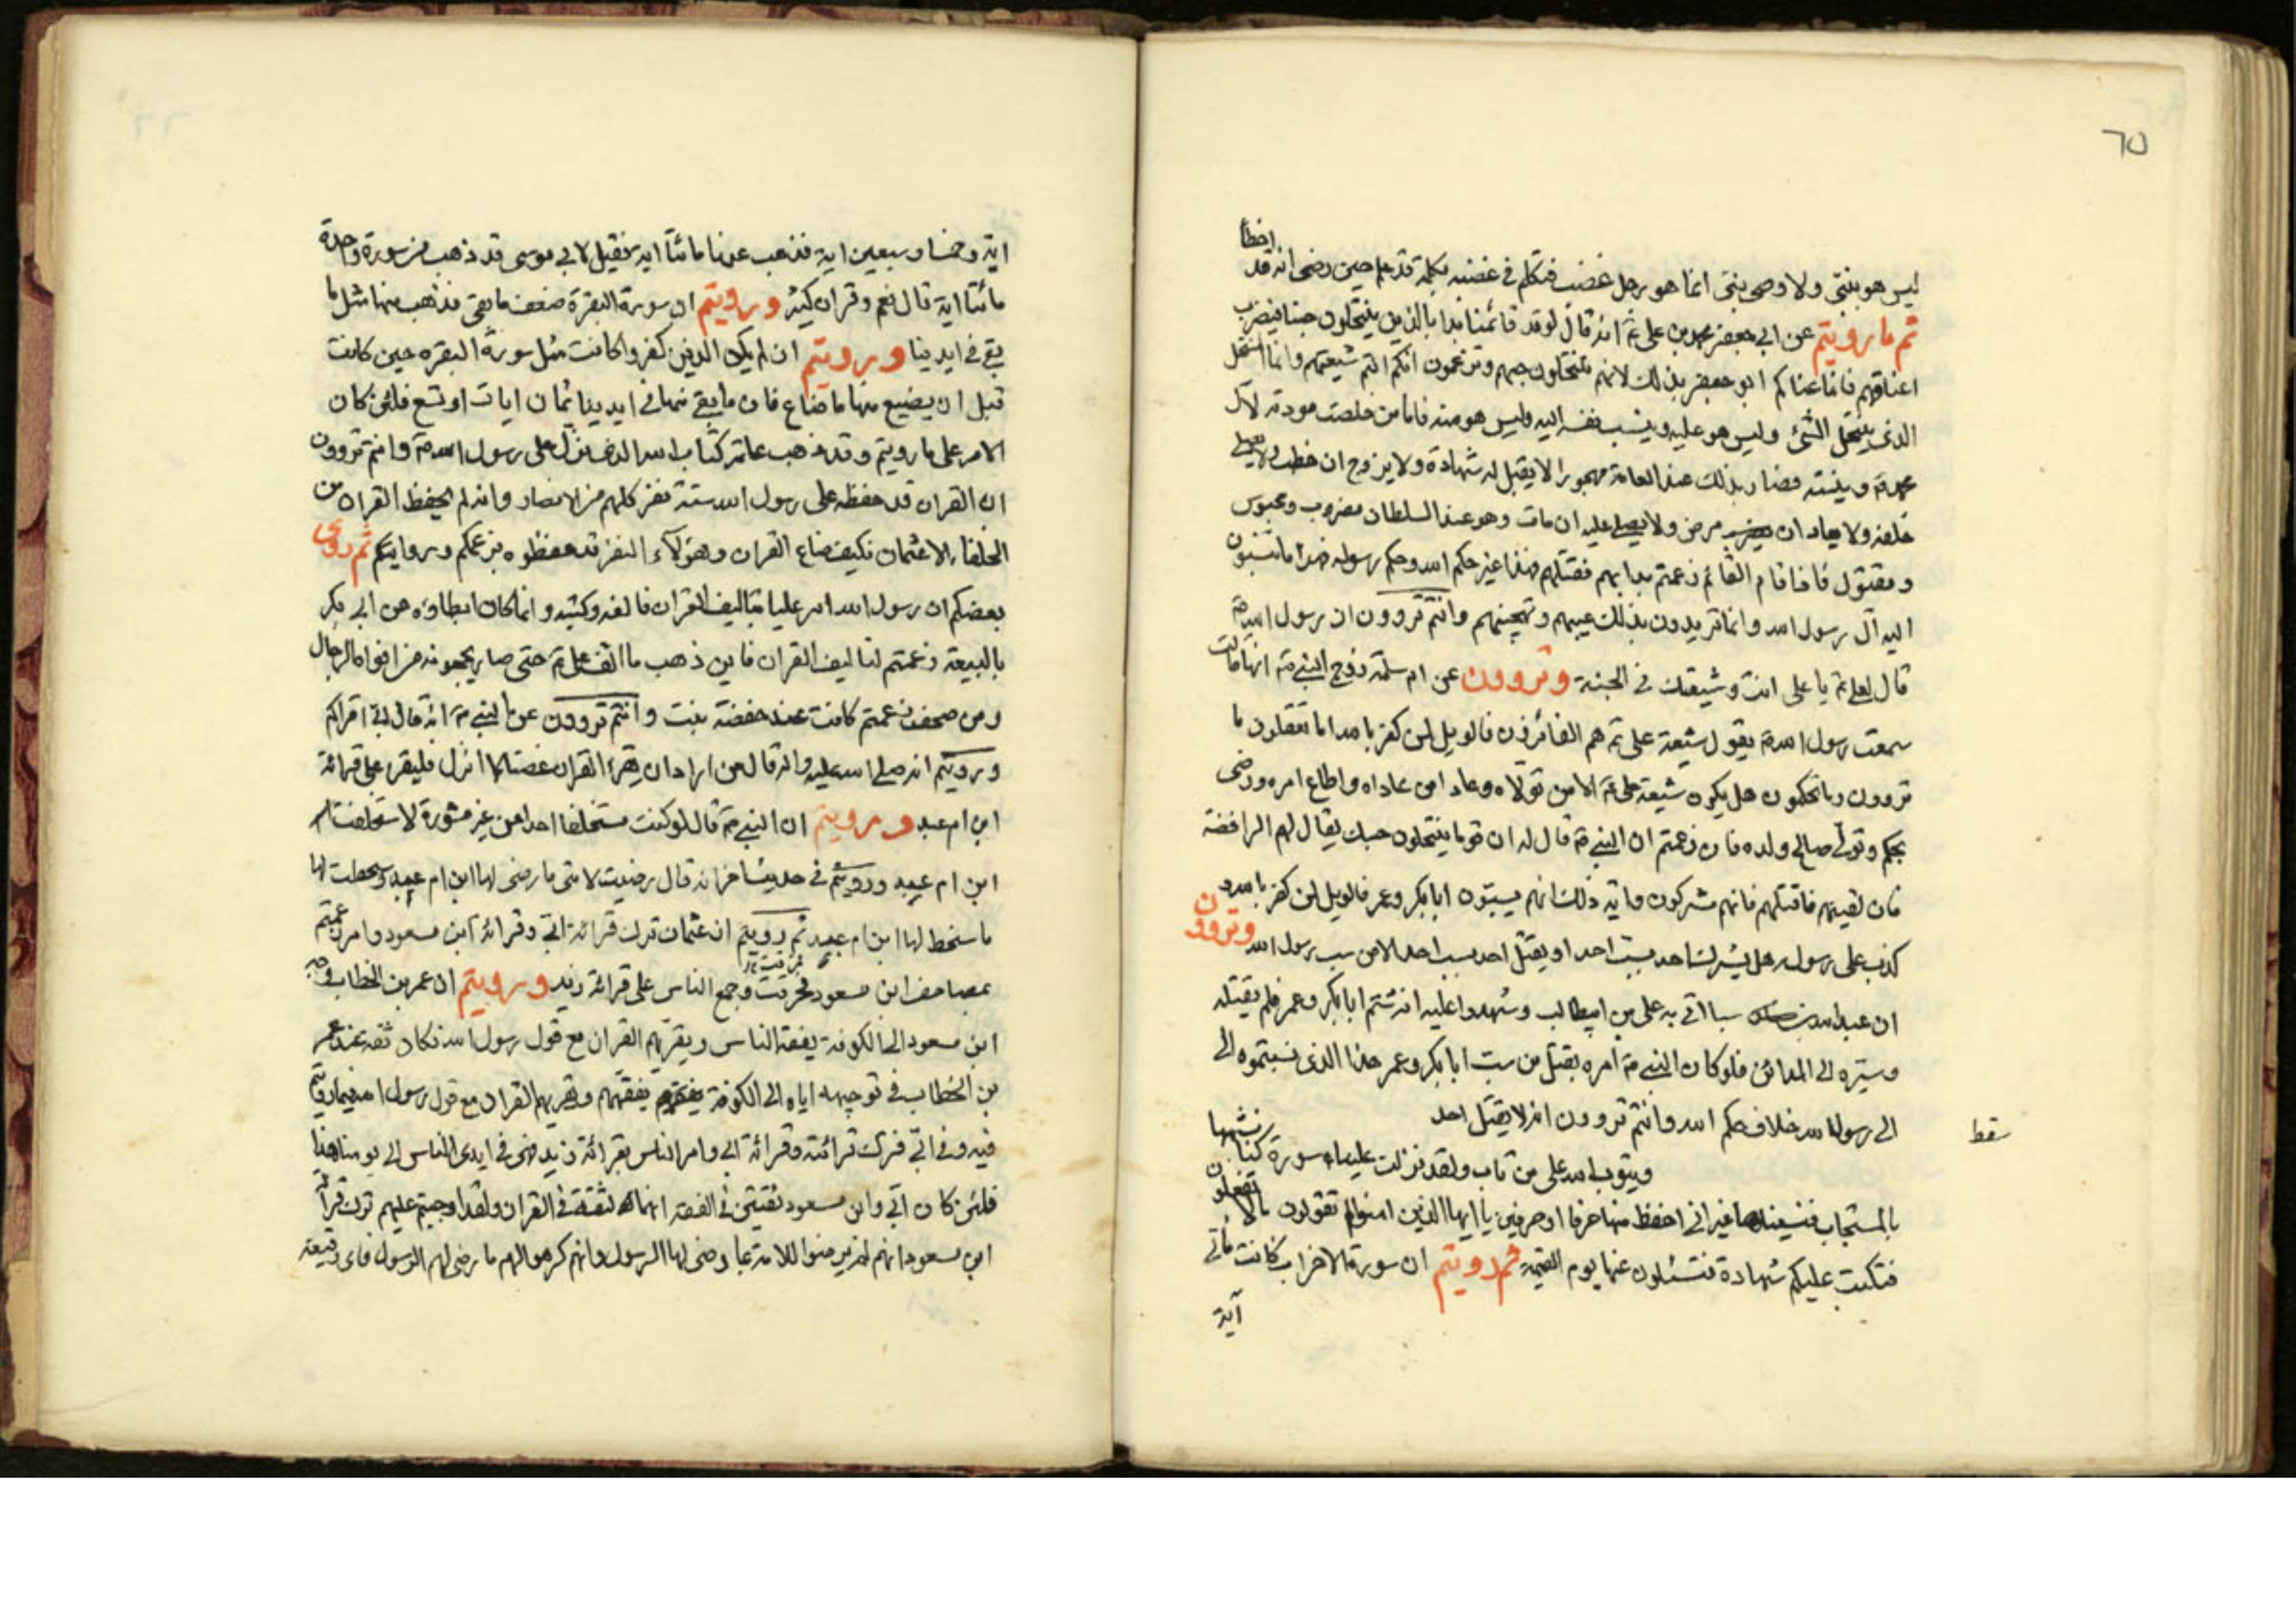 ٦٥
اخطأ
ليس هو بنبي ولا وصي بنبي انما هو رجل غضب فتكلم في غضبه بكلمة قد علم حين رضى انه قد
ثم ما رويتم عن ابي جعفر محمد بن علي ع انه قال لو قد قائمنا بدا بالذين ينتحلون حبنا فيضرب
اعناقهم فانما عناكم ابو جعفر بذلك لانهم ينتحلون حبهم وتزعمون انكم انتم شيعتهم وانما المنتحل
الذي ينتحل الشئ وليس هو عليه وينسب نفسه اليه وليس هو منه فاما من خلصت مودته لآل
محمد ص وبينته فصار بذلك عند العامة مهجورا لا يقبل له شهادة ولا يزوج ان خطب ولا يصلى
خلفه ولا يعاد ان مرض ولا يصلى عليه ان مات وهو عند السلطان مضروب ومحبوس
ومقتول فاذا قام القائم زعمتم بدا بهم فقتلهم فهذا غير حكم الله وحكم رسوله فهذا ما تنسبون
اليه آل رسول الله وانما تريدون بذلك عيبهم وتهجينهم وانتم تروون ان رسول الله ص
قال لعلي ع يا علي انت وشيعتك في الجنة وتروون عن ام سلمة زوج النبي ص انها قالت
سمعت رسول الله ص يقول شيعة علي ع هم الفائزون فالويل لمن كفر بالله اما تعقلون ما
تروون وما تحكمون هل يكون شيعة علي ع الا من تولاه وعادى من عاداه واطاع امره ورضى
بحكمه وتولى صالحي ولده فان زعمتم ان النبي ص قال له ان قوما ينتحلون حبك يقال لهم الرافضة
فان لقيتهم فاقتلهم فانهم مشركون واية ذلك انهم يسبون ابا بكر وعمر فالويل لمن كفر بالله و
كذب على رسوله هل يشرك احد بسبّ احد او يقتل احد بسب احد الا من سب رسول الله وتروون
ان عبد الله بن سبا اتي به علي بن ابيطالب وشهدوا عليه انه شتم ابا بكر وعمر فلم يقتله
وسيّره الى المدائن فلو كان النبي ص امره بقتل من سب ابا بكر وعمر هذا الذي نسبتموه الى
الى رسول الله خلاف حكم الله وانتم تروون انه لا يقتل احد
سقط
ويتوب الله على من تاب ولقد نزلت علينا سورة كنا نشبهها
بالمسبحات فنسيناها غير اني احفظ منها حرفا او حرفين يا ايها الذين امنوا لم تقولون ما لا تفعلون
فتكتب عليكم شهادة فتسئلون عنها يوم القيمة ثم رويتم ان سورة الاحزاب كانت مأتي
آية
اية وخمسا وسبعين اية فذهب عنها مائتا اية فقيل لابي موسى قد ذهب من سورة واحدة
مائتا اية قال نعم وقران كثير ورويتم ان سورة البقرة ضعف ما بقى فذهب منها مثل ما
بقى في ايدينا ورويتم ان لم يكن الذين كفروا كانت مثل سورة البقره حين كانت
قبل ان يضيع منها ما ضاع فان ما بقى منها في ايدينا ثمان ايات او تسع فلئن كان
الامر على ما رويتم وقد ذهب عامة كتاب الله الذي نزل على رسول الله ص وانتم تروون
ان القران قد حفظه على رسول الله ستة نفر كلهم من الانصار وانه لم يحفظ القران من
الخلفاء الا عثمان فكيف ضاع القران وهؤلآء النفر قد حفظوه بزعمكم وروايتكم ثم روى
بعضكم ان رسول الله امر عليا بتاليف القران فالفه وكتبه وانما كان ابطاؤه عن ابي بكر
بالبيعة زعمتم لتاليف القران فاين ذهب ما الف علي ع حتى صار يجمعونه من افواه الرجال
ومن صحف زعمتم كانت عند حفصة بنت وانتم تروون عن النبي ص انه قال ابي اقراكم
ورويتم انه صلى الله عليه واله قال من اراد ان يقرء القران غضا كما انزل فليقرء على قرائة
ابن ام عبد ورويتم ان النبي ص قال لو كنت مستخلفا احدا من غير مشورة لاستخلفت
ابن ام عبد ورويتم في حديث اخر انه قال رضيت لامتي ما رضى لها ابن ام عبد وسخطت لها
ما سخط لها ابن ام عبد ثم رويتم ان عثمان ترك قرائة ابي وقرائة ابن مسعود وامر زعمتم
بمصاحف ابن مسعود فحرقت وجمع الناس على قرائة زيد ورويتم ان عمر بن الخطاب وجه
ابن مسعود الى الكوفة يفقه الناس ويقرئهم القران مع قول رسول الله فكان ثقة عند عمر
بن الخطاب في توجيهه اياه الى الكوفة يفقههم ويقريهم القران مع قول رسول الله فيما رويتم
فيه وفي ابي فترك قرائته وقرائة ابي وامر الناس بقرائة زيد فهي في ايدي الناس الى يومنا هذا
فلئن كان ابي وابن مسعود ثقتين في الفقه انهما لثقة في القران ولقد اوجبتم عليهم ترك قرائة
ابن مسعود انهم لم يرضوا للامة بما رضى لها الرسول وانهم كرهوا لهم ما رضى لهم الرسول فاى وقيعة